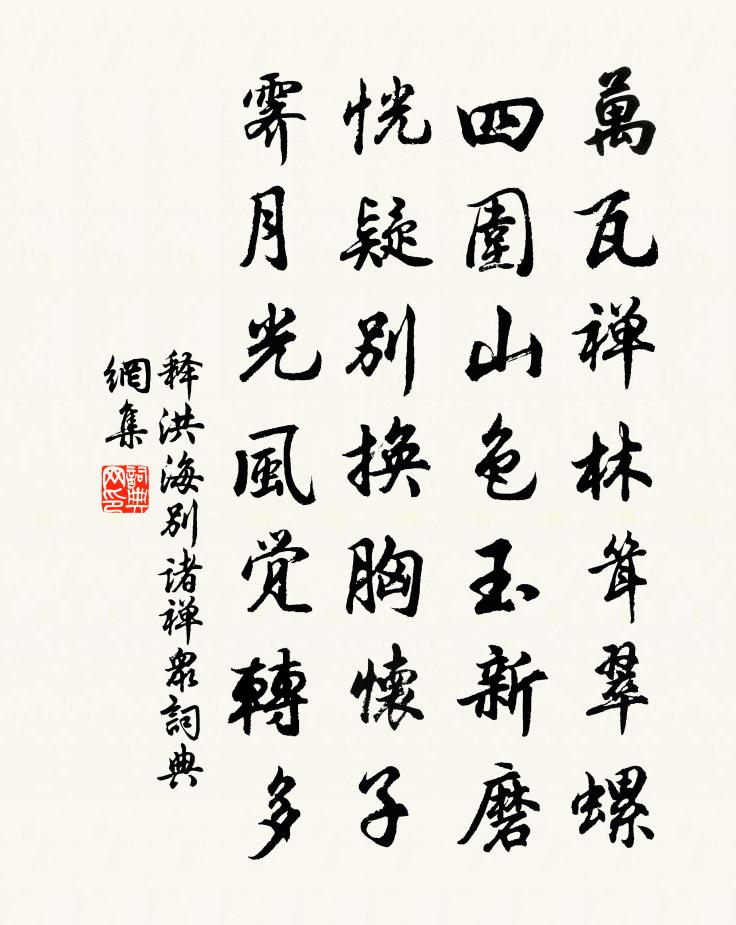 萬瓦禅林耸翠螺
四圍山色玉新磨
恍疑别换胸懷子
霽月光風觉轉多
释洪海别诸禅衆詞典
網集
詞典
网印